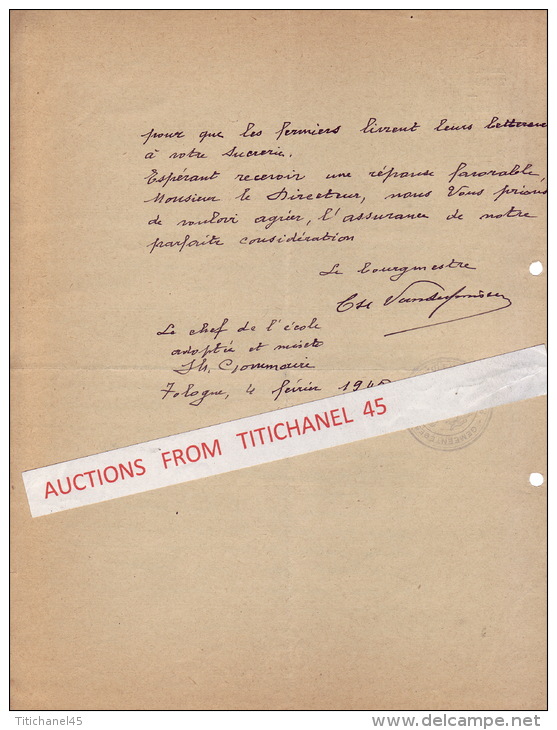 pour que les fermiers livrent leurs betteraves
à votre sucrerie.
Espérant recevoir une réponse favorable,
Monsieur le Directeur, nous Vous prions
de vouloir agréer, l'assurance de notre
parfaite considération
Le bourgmestre
Le chef de l'école
adoptée et mixte
Fologne, 4 février 194
AUCTIONS FROM TITICHANEL 45
Titichanel45
www.delcampe.net